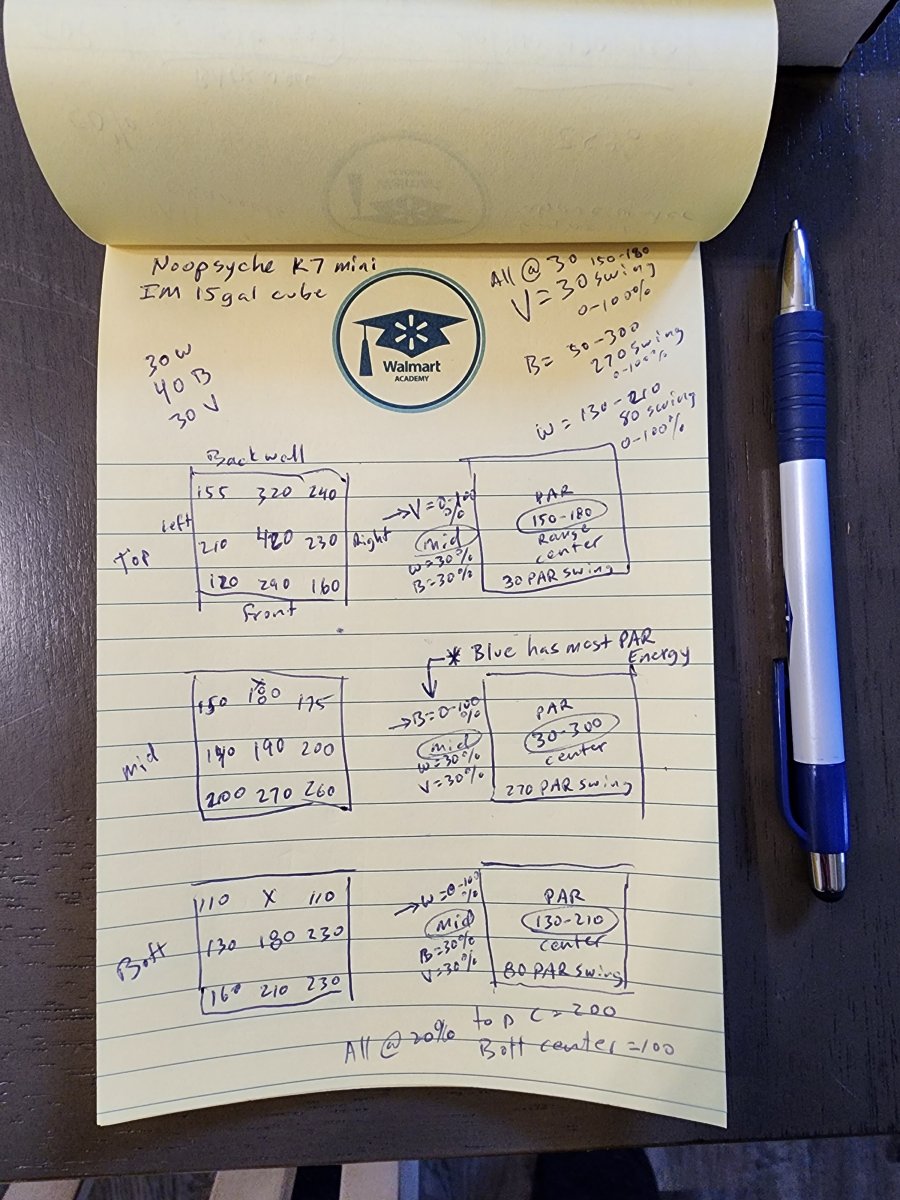 Noopsyche K7 mini
IM 15gal cube
Walmart
ACADEMY
All @ 30 150-180
V = 30 swing
0-100%
B = 50-300
270 swing
0-100%
W = 130-210
80 swing
0-100%
30 W
40 B
30 V
Back wall
Left
Right
Top
155 320 240
210 420 230
120 290 160
Front
→ V = 0-100
%
mid
W = 30%
B = 30%
PAR
150-180
Range
center
30 PAR swing
* Blue has most PAR
Energy
mid
150 180 175
190 190 200
200 270 260
→ B = 0-100
%
mid
W = 30%
V = 30%
PAR
30-300
center
270 PAR swing
Bott
110 X 110
130 180 230
160 210 230
→ W = 0-100
%
mid
B = 30%
V = 30%
PAR
130-210
center
80 PAR swing
All @ 20% top C = 200
Bott center = 100